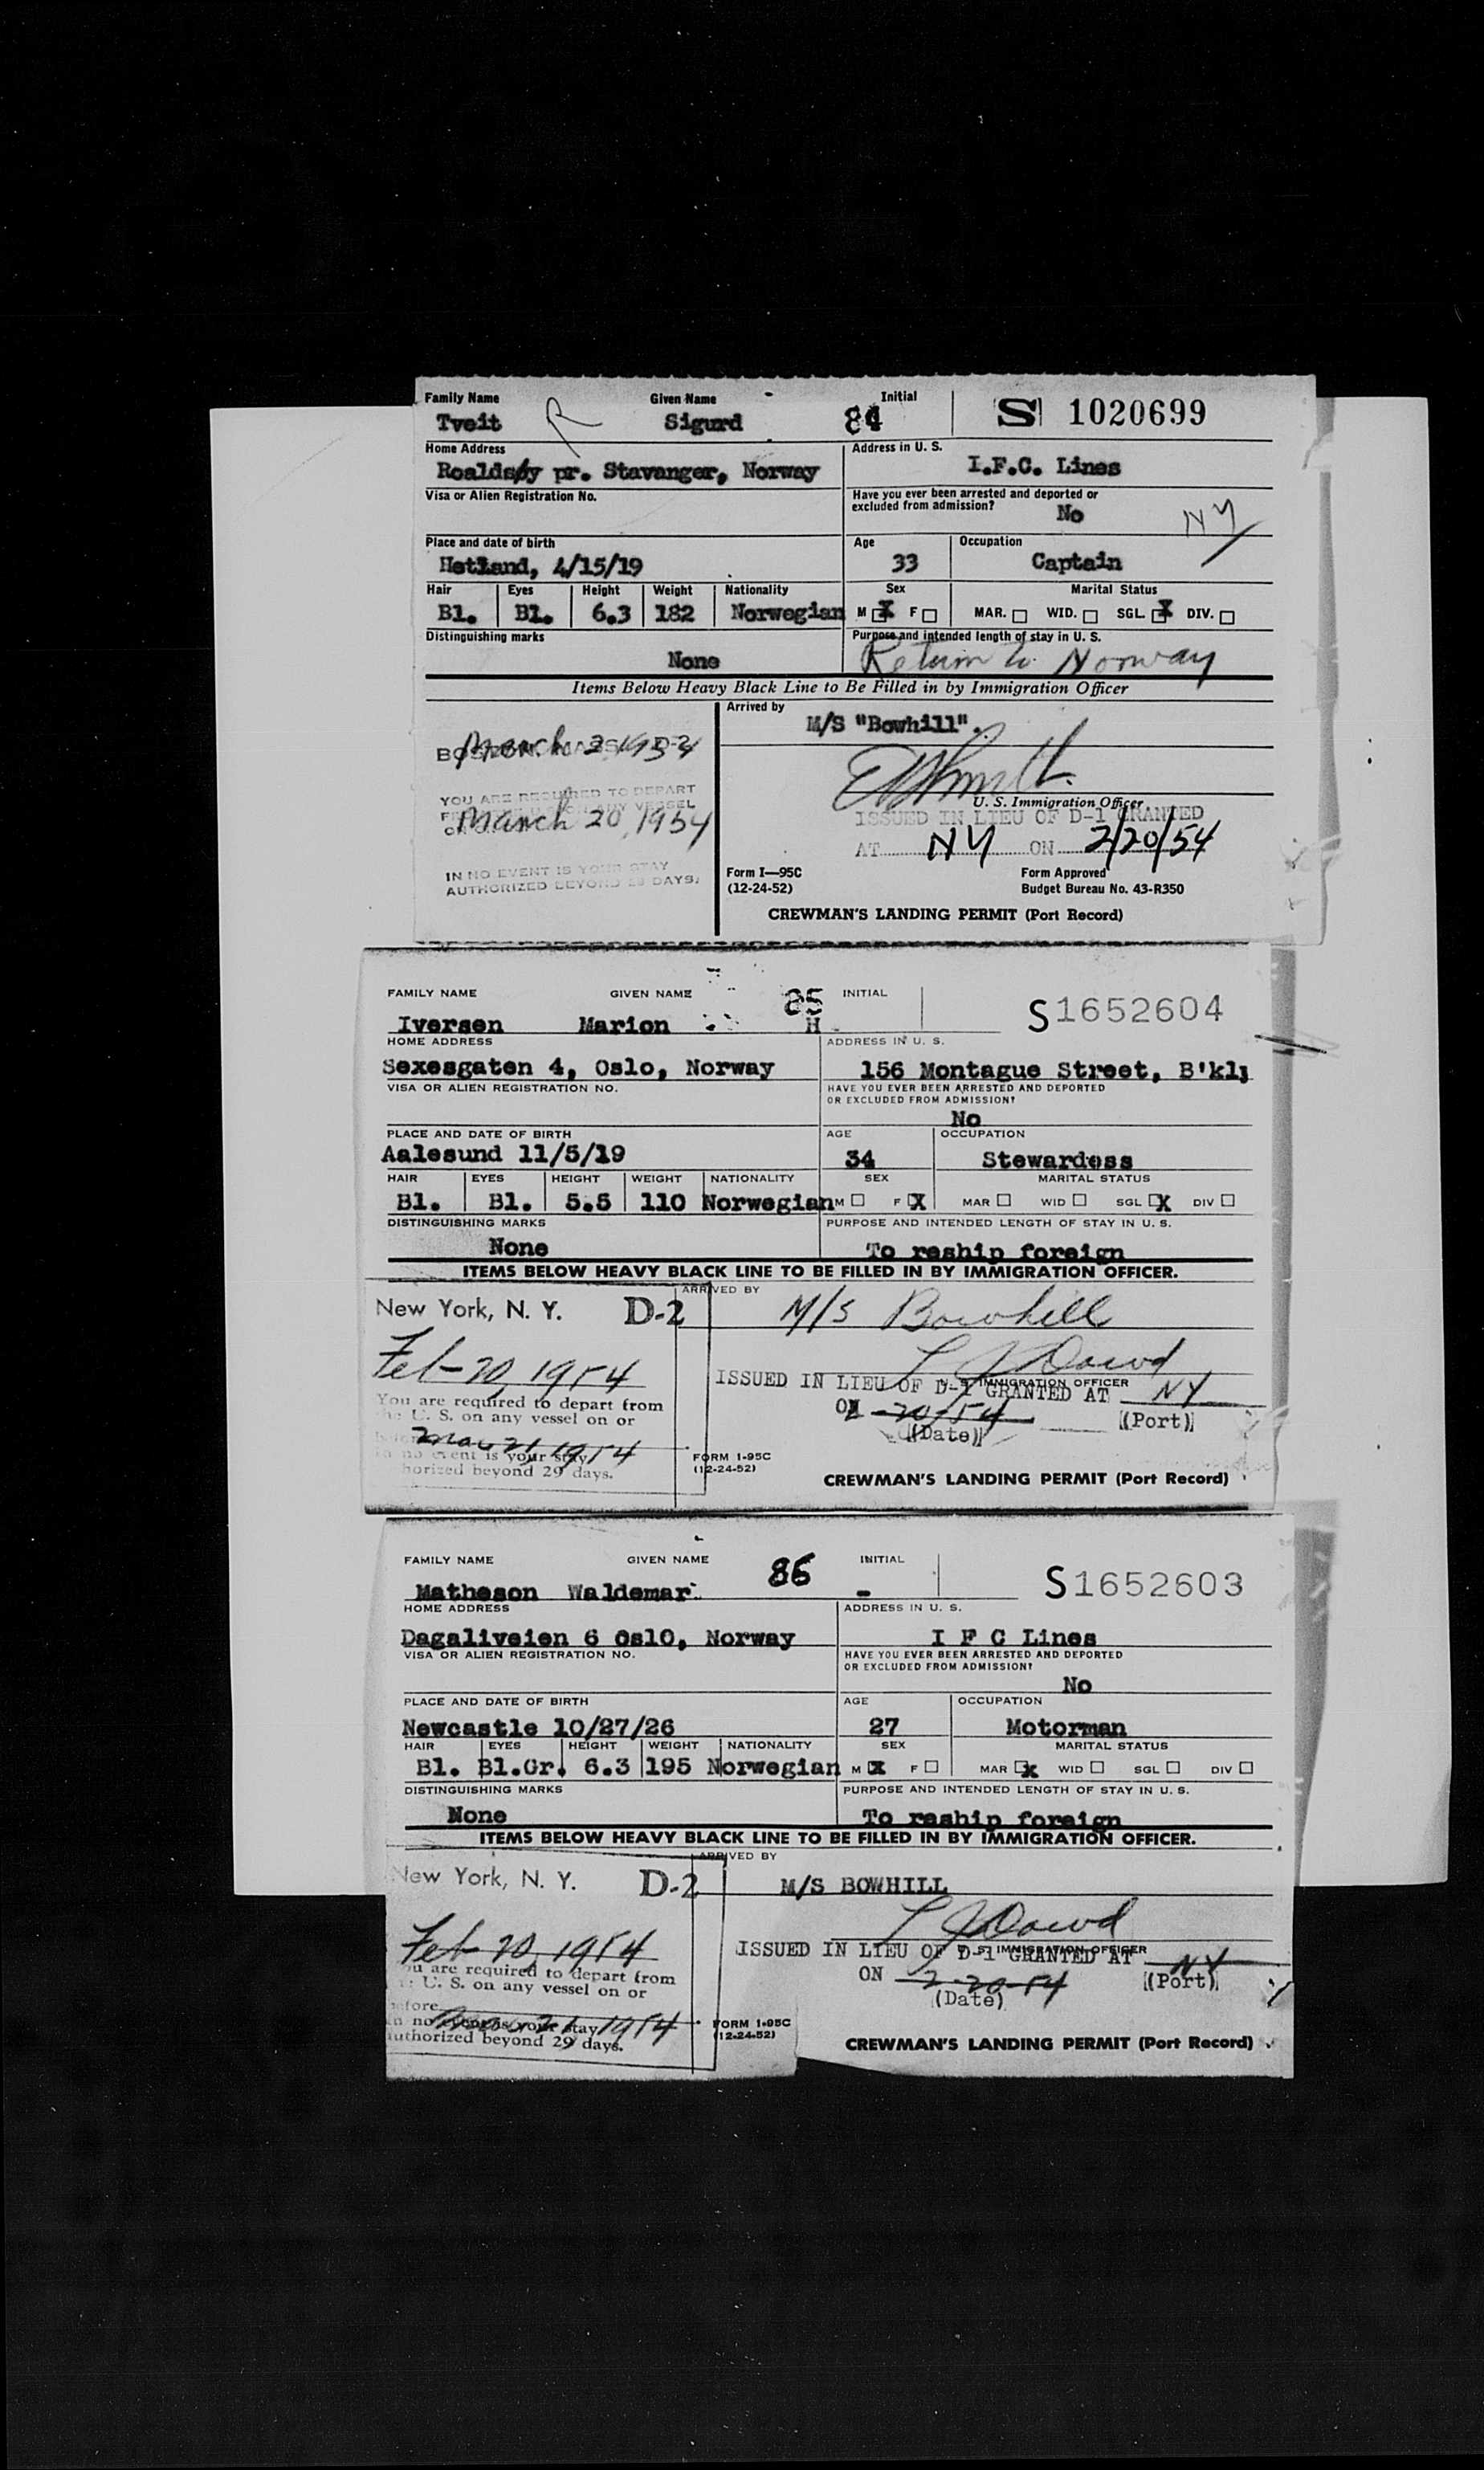 Family Name Given Name Initial
Tveit R Sigurd 84 S 1020699
Home Address Address in U. S.
Roaldsøy pr. Stavanger, Norway I.F.C. Lines
Visa or Alien Registration No. Have you ever been arrested and deported or
excluded from admission? No NY
Place and date of birth Age Occupation
Hetland, 4/15/19 33 Captain
Hair Eyes Height Weight Nationality Sex Marital Status
Bl. Bl. 6.3 182 Norwegian M X F MAR. WID. SGL. X DIV.
Distinguishing marks Purpose and intended length of stay in U. S.
None Return to Norway
Items Below Heavy Black Line to Be Filled in by Immigration Officer
Arrived by
M/S "Bowhill".
BOSTON, MASS. March 2, 1954
U. S. Immigration Officer
YOU ARE REQUIRED TO DEPART
ISSUED IN LIEU OF D-1 GRANTED
March 20, 1954
AT NY ON 2/20/54
IN NO EVENT IS YOUR STAY
AUTHORIZED BEYOND 29 DAYS.
Form I—95C Form Approved
(12-24-52) Budget Bureau No. 43-R350
CREWMAN'S LANDING PERMIT (Port Record)
FAMILY NAME GIVEN NAME 85 INITIAL S1652604
Iversen Marion H
HOME ADDRESS ADDRESS IN U. S.
Sexesgaten 4, Oslo, Norway 156 Montague Street, B'kly
VISA OR ALIEN REGISTRATION NO. HAVE YOU EVER BEEN ARRESTED AND DEPORTED
OR EXCLUDED FROM ADMISSION?
No
PLACE AND DATE OF BIRTH AGE OCCUPATION
Aalesund 11/5/19 34 Stewardess
HAIR EYES HEIGHT WEIGHT NATIONALITY SEX MARITAL STATUS
Bl. Bl. 5.5 110 Norwegian M F X MAR WID SGL X DIV
DISTINGUISHING MARKS PURPOSE AND INTENDED LENGTH OF STAY IN U. S.
None To reship foreign
ITEMS BELOW HEAVY BLACK LINE TO BE FILLED IN BY IMMIGRATION OFFICER.
ARRIVED BY
New York, N. Y. D-2 M/S Bowhill
Feb-20, 1954 L J Dowd
U. S. IMMIGRATION OFFICER
ISSUED IN LIEU OF D-1 GRANTED AT NY
You are required to depart from
the U. S. on any vessel on or
ON 2-20-54 (Port)
(Date)
before Mar 21, 1954
In no event is your stay
authorized beyond 29 days.
FORM I-95C
(12-24-52)
CREWMAN'S LANDING PERMIT (Port Record)
FAMILY NAME GIVEN NAME 86 INITIAL S1652603
Matheson Waldemar -
HOME ADDRESS ADDRESS IN U. S.
Dagaliveien 6 OslO, Norway I F C Lines
VISA OR ALIEN REGISTRATION NO. HAVE YOU EVER BEEN ARRESTED AND DEPORTED
OR EXCLUDED FROM ADMISSION?
No
PLACE AND DATE OF BIRTH AGE OCCUPATION
Newcastle 10/27/26 27 Motorman
HAIR EYES HEIGHT WEIGHT NATIONALITY SEX MARITAL STATUS
Bl. Bl.Gr. 6.3 195 Norwegian M X F MAR X WID SGL DIV
DISTINGUISHING MARKS PURPOSE AND INTENDED LENGTH OF STAY IN U. S.
None To reship foreign
ITEMS BELOW HEAVY BLACK LINE TO BE FILLED IN BY IMMIGRATION OFFICER.
ARRIVED BY
New York, N. Y. D-2 M/S BOWHILL
Feb 20, 1954 L J Dowd
U. S. IMMIGRATION OFFICER
ISSUED IN LIEU OF D-1 GRANTED AT NY
You are required to depart from
the U. S. on any vessel on or
ON 2-20-54 (Port)
(Date)
before Mar 21, 1954
In no event is your stay
authorized beyond 29 days.
FORM I-95C
(12-24-52)
CREWMAN'S LANDING PERMIT (Port Record)